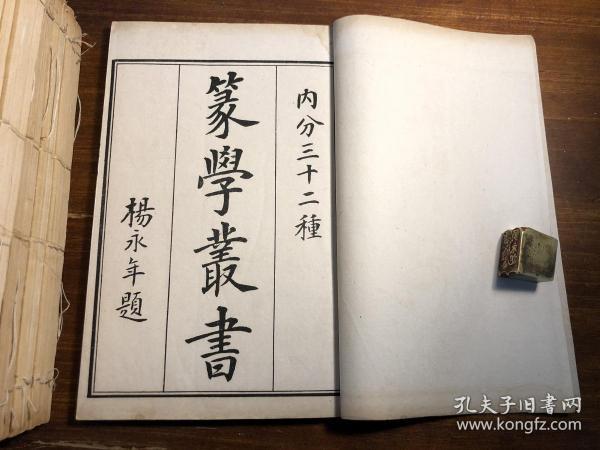 内分三十二種
篆學叢書
楊永年題
孔夫子旧书网
www.kongfz.com